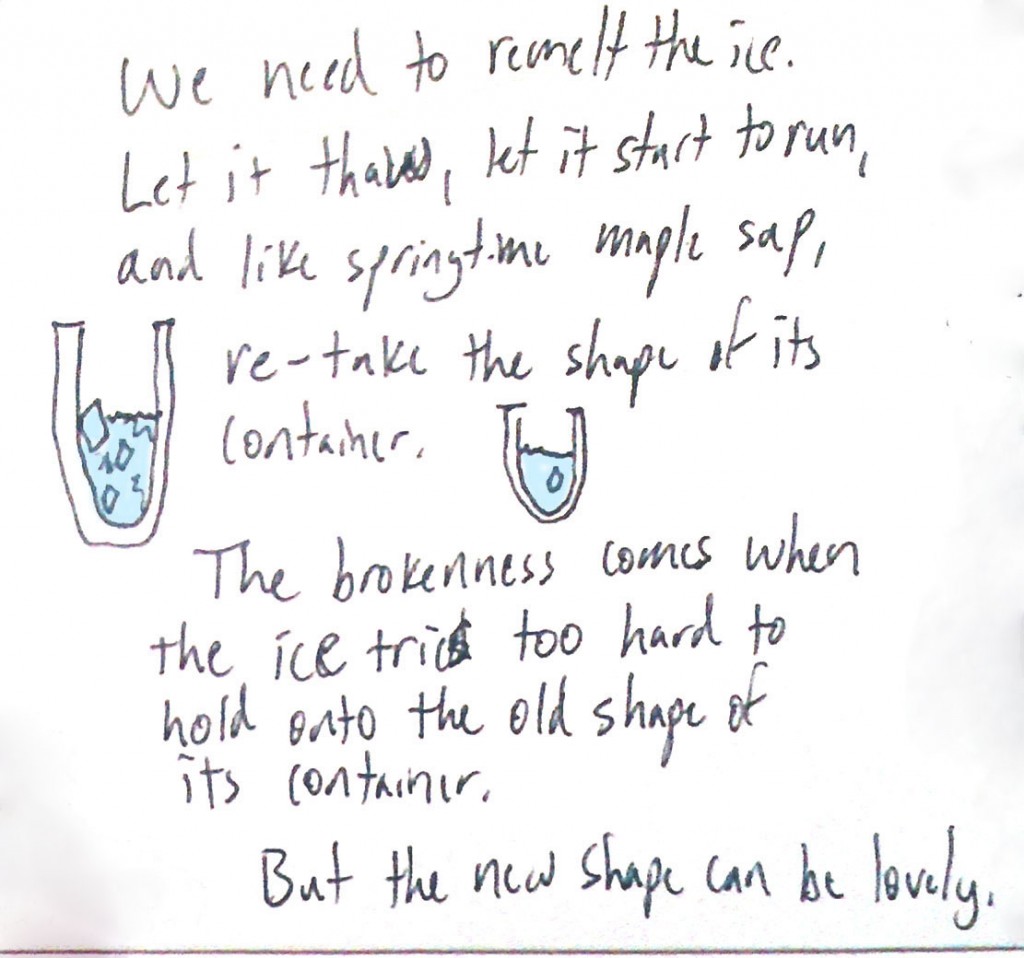 We need to remelt the ice.
Let it thaw, let it start to run,
and like springtime maple sap,
re-take the shape of its
container.
The brokenness comes when
the ice tries too hard to
hold onto the old shape of
its container.
But the new shape can be lovely.